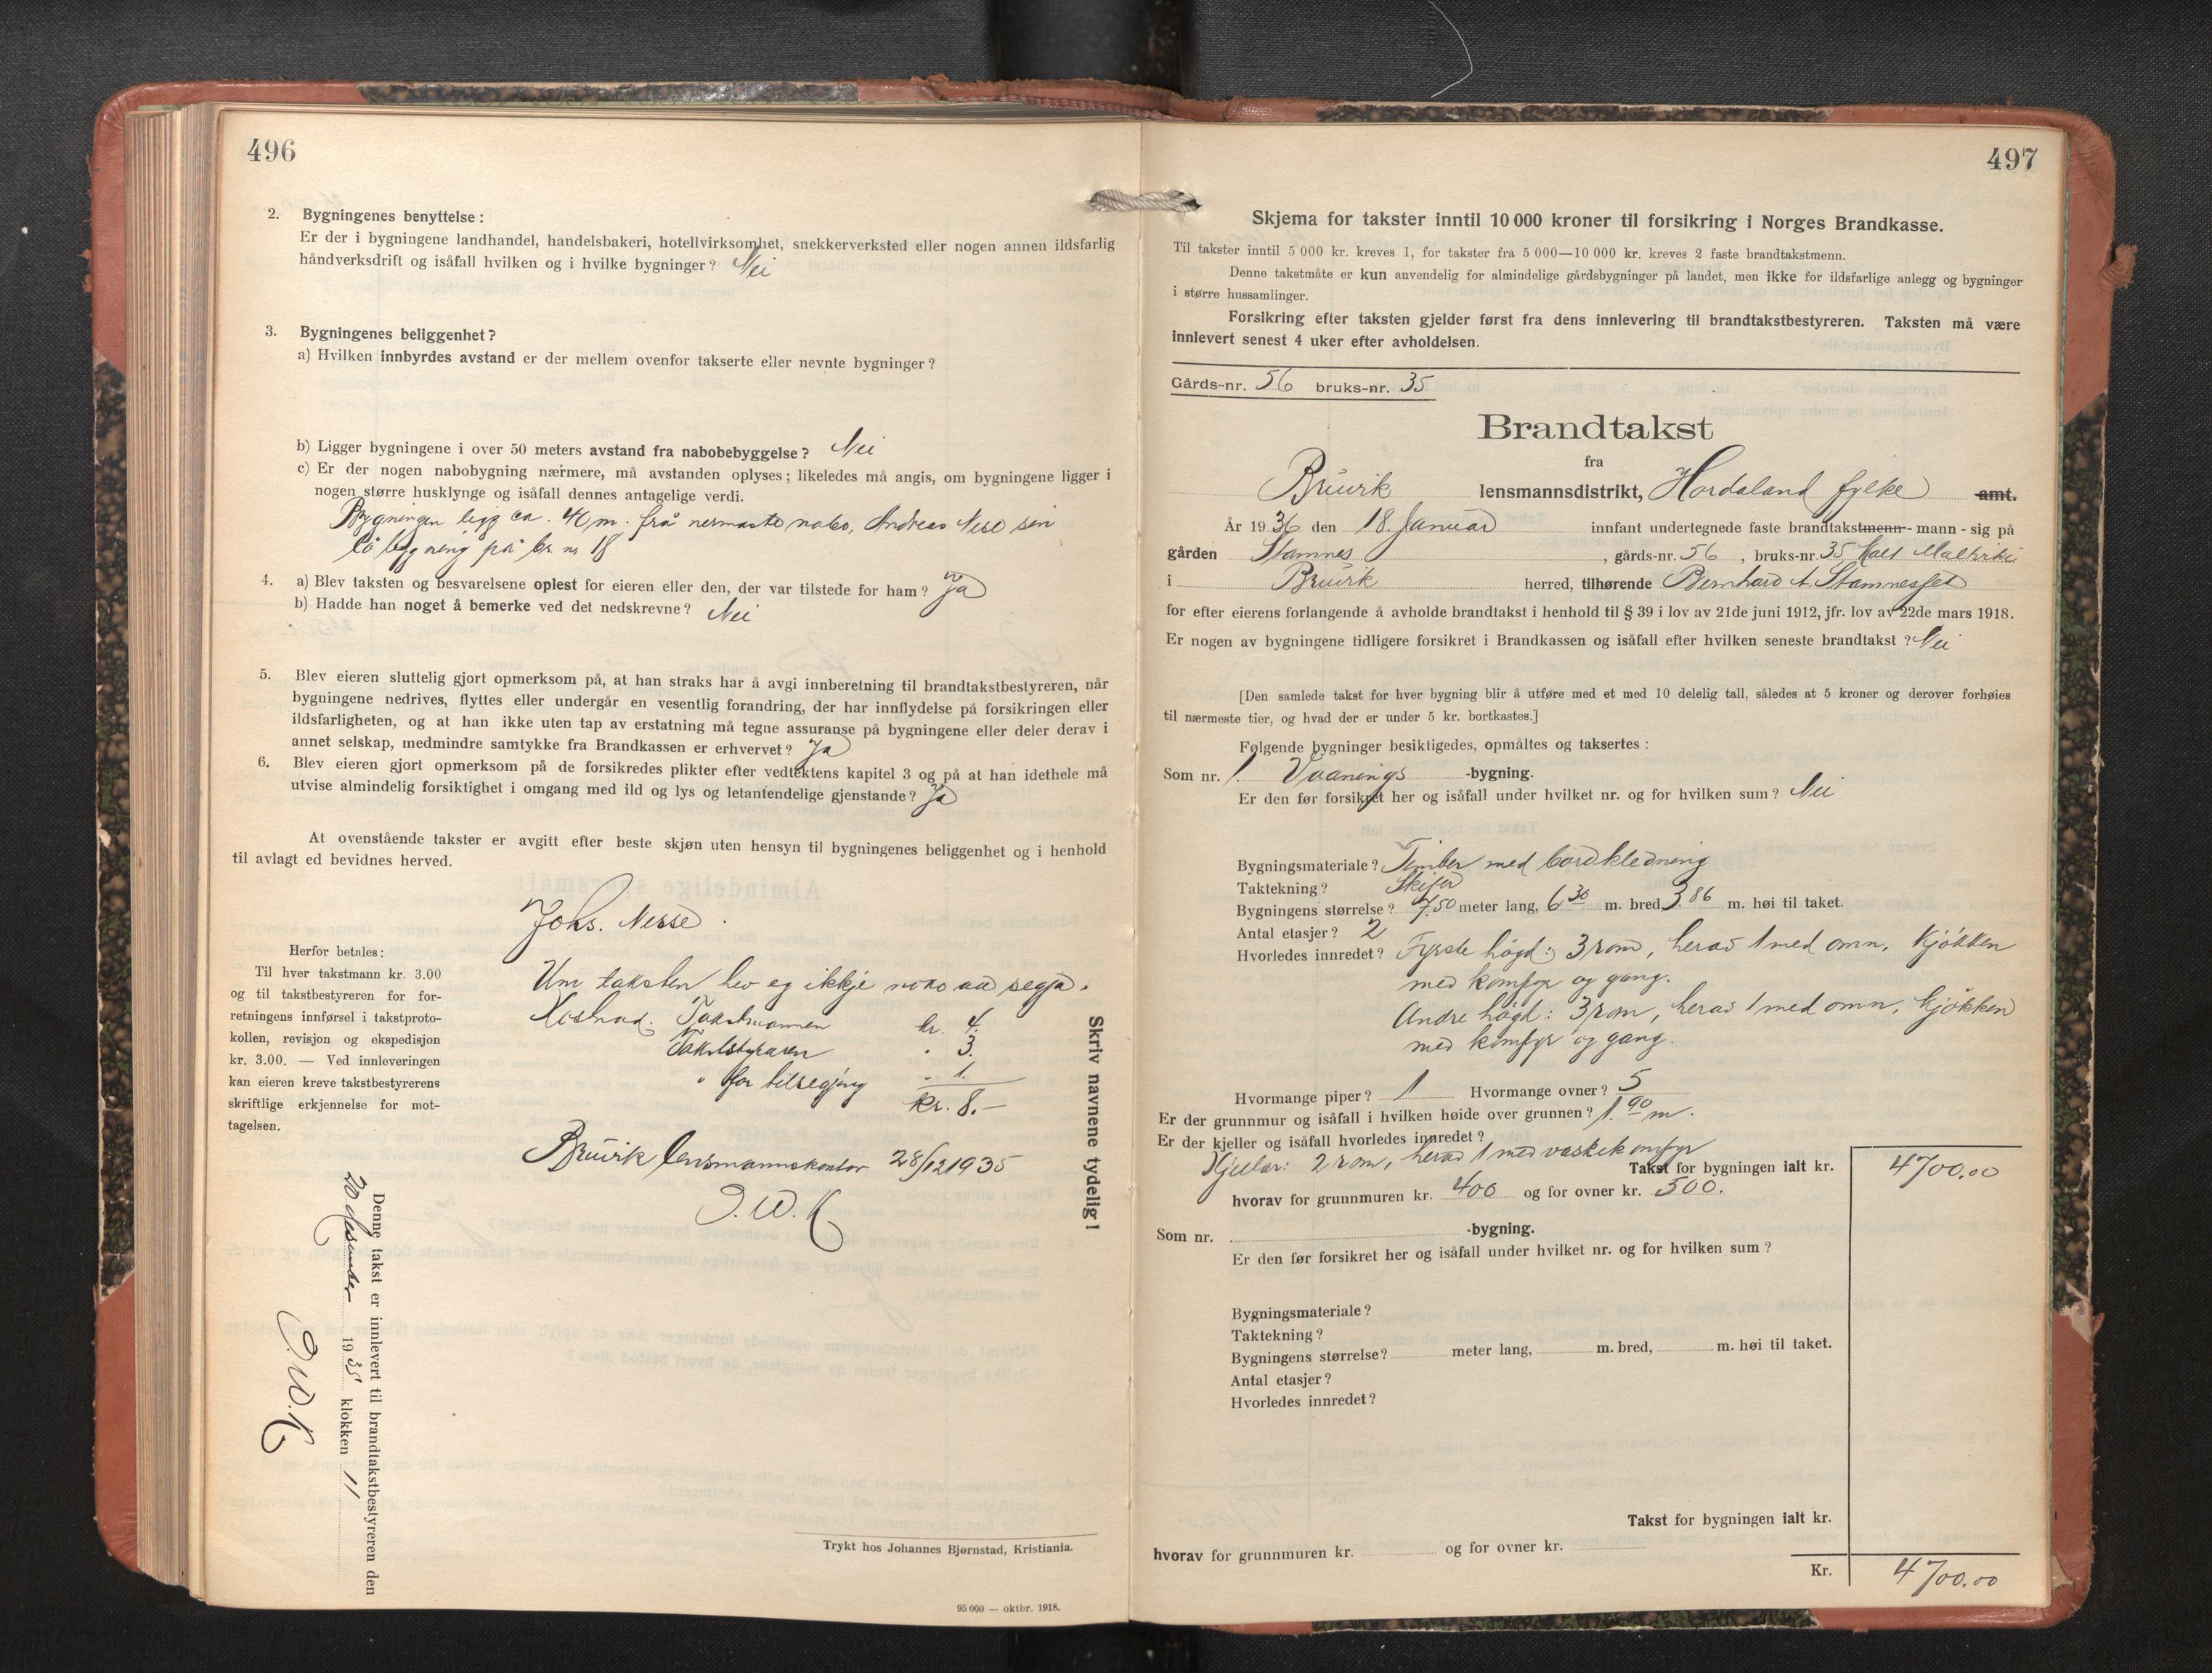 496
2. Bygningenes benyttelse:
Er der i bygningene landhandel, handelsbakeri, hotellvirksomhet, snekkerverksted eller nogen annen ildsfarlig
håndverksdrift og isåfall hvilken og i hvilke bygninger? Nei
3. Bygningenes beliggenhet?
a) Hvilken innbyrdes avstand er der mellem ovenfor takserte eller nevnte bygninger?
b) Ligger bygningene i over 50 meters avstand fra nabobebyggelse? Nei
c) Er der nogen nabobygning nærmere, må avstanden oplyses; likeledes må angis, om bygningene ligger i
nogen større husklynge og isåfall dennes antagelige verdi.
Bygningen ligg ca. 40 m. frå nermaste nabo, Andreas Nese sin
løbygning på br nr 18
4. a) Blev taksten og besvarelsene oplest for eieren eller den, der var tilstede for ham? Ja
b) Hadde han noget å bemerke ved det nedskrevne? Nei
5. Blev eieren sluttelig gjort opmerksom på, at han straks har å avgi innberetning til brandtakstbestyreren, når
bygningene nedrives, flyttes eller undergår en vesentlig forandring, der har innflydelse på forsikringen eller
ildsfarligheten, og at han ikke uten tap av erstatning må tegne assuranse på bygningene eller deler derav i
annet selskap, medmindre samtykke fra Brandkassen er erhvervet? Ja
6. Blev eieren gjort opmerksom på de forsikredes plikter efter vedtektens kapitel 3 og på at han idethele må
utvise almindelig forsiktighet i omgang med ild og lys og letantendelige gjenstande? Ja
At ovenstående takster er avgitt efter beste skjøn uten hensyn til bygningenes beliggenhet og i henhold
til avlagt ed bevidnes herved.
Johs. Nesse.
Herfor betales:
Til hver takstmann kr. 3.00
og til takstbestyreren for for-
retningens innførsel i takstproto-
kollen, revisjon og ekspedisjon
kr. 3.00. — Ved innleveringen
kan eieren kreve takstbestyrerens
skriftlige erkjennelse for mot-
tagelsen.
Um taksten hev eg ikkje noko aa segja.
Kostnad: Takstmannen kr. 4.
Takststyraren " 3.
" for tilsegjing " 1.
kr. 8.-
Bruvik lensmannskontor 28/12 1935
O. W. K
Skriv navnene tydelig!
Denne takst er innlevert til brandtakstbestyreren den
20 desember 1935 klokken 11
O. W. K
Trykt hos Johannes Bjørnstad, Kristiania.
95 000 — oktbr. 1918.
497
Skjema for takster inntil 10 000 kroner til forsikring i Norges Brandkasse.
Til takster inntil 5 000 kr. kreves 1, for takster fra 5 000—10 000 kr. kreves 2 faste brandtakstmenn.
Denne takstmåte er kun anvendelig for almindelige gårdsbygninger på landet, men ikke for ildsfarlige anlegg og bygninger
i større hussamlinger.
Forsikring efter taksten gjelder først fra dens innlevering til brandtakstbestyreren. Taksten må være
innlevert senest 4 uker efter avholdelsen.
Gårds-nr. 56 bruks-nr. 35
Brandtakst
fra
Bruvik lensmannsdistrikt, Hordaland fylke amt.
År 1936 den 18. Januar innfant undertegnede faste brandtakstmenn - mann - sig på
gården Stamnes, gårds-nr. 56, bruks-nr. 35 kall
i Bruvik herred, tilhørende Bernhard A. Stamneshet
for efter eierens forlangende å avholde brandtakst i henhold til § 39 i lov av 21de juni 1912, jfr. lov av 22de mars 1918.
Er nogen av bygningene tidligere forsikret i Brandkassen og isåfall efter hvilken seneste brandtakst? Nei
[Den samlede takst for hver bygning blir å utføre med et med 10 delelig tall, således at 5 kroner og derover forhøies
til nærmeste tier, og hvad der er under 5 kr. bortkastes.]
Følgende bygninger besiktigedes, opmåltes og taksertes:
Som nr. 1. Vaanings -bygning.
Er den før forsikret her og isåfall under hvilket nr. og for hvilken sum? Nei
Bygningsmateriale? Timber med bordkledning
Taktekning? Skifer
Bygningens størrelse? 7.50 meter lang, 6.30 m. bred 3.86 m. høi til taket.
Antal etasjer? 2
Hvorledes innredet? Fyrste høgd: 3 rom, herav 1 med omn, kjøkken
med komfyr og gang.
Andre høgd: 3 rom, herav 1 med omn, kjøkken
med komfyr og gang.
Hvormange piper? 1 Hvormange ovner? 5
Er der grunnmur og isåfall i hvilken høide over grunnen? 1.90 m.
Er der kjeller og isåfall hvorledes innredet?
Kjellar: 2 rom, herav 1 med vaskekomfyr
Takst for bygningen ialt kr. 4700.00
hvorav for grunnmuren kr. 400 og for ovner kr. 500.
Som nr. -bygning.
Er den før forsikret her og isåfall under hvilket nr. og for hvilken sum?
Bygningsmateriale?
Taktekning?
Bygningens størrelse? meter lang, m. bred, m. høi til taket.
Antal etasjer?
Hvorledes innredet?
Takst for bygningen ialt kr.
hvorav for grunnmuren kr. og for ovner kr.
Kr. 4700.00